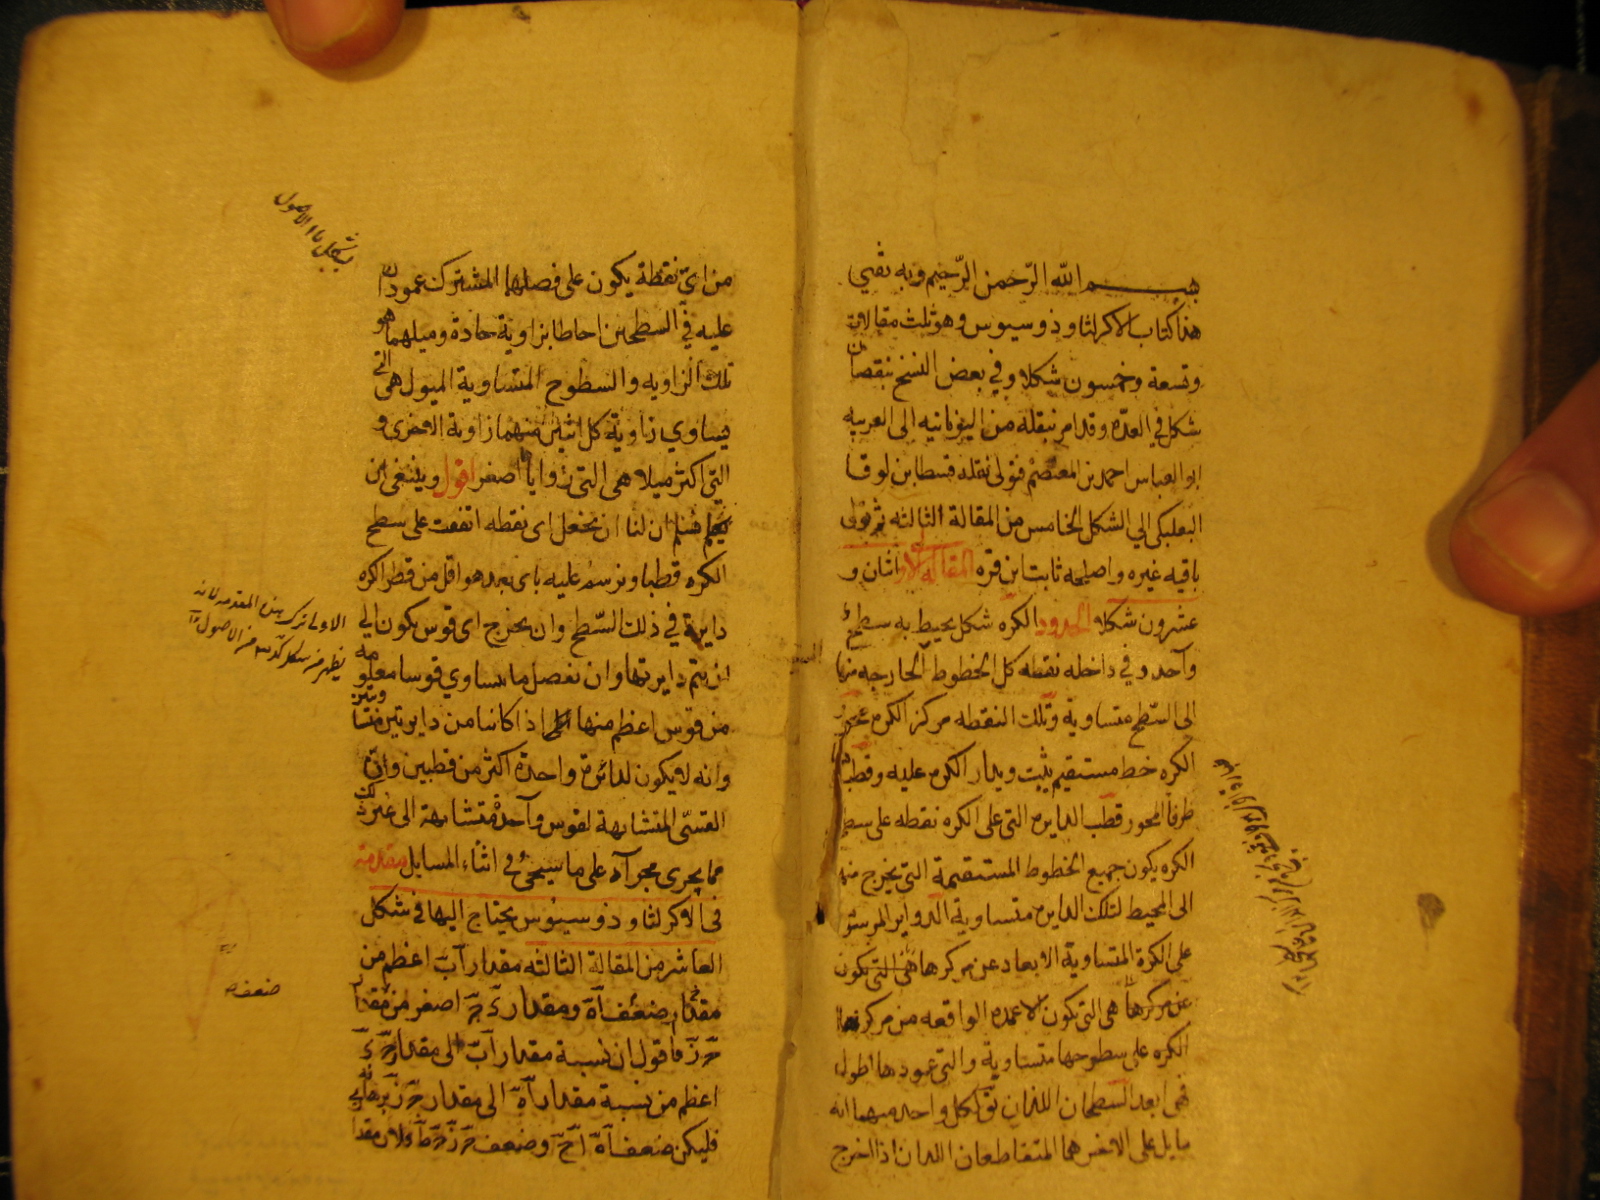 بسم الله الرحمن الرحيم وبه ثقتي
هذا كتاب الاكر لثاوذوسيوس وهو ثلث مقالات
وتسعة وخمسون شكلا وفي بعض النسخ بنقصان
شكل في العده وقد امر بنقله من اليونانيه الى العربيه
ابو العباس احمد بن المعتصم فتولى نقله قسطا بن لوقا
البعلبكي الى الشكل الخامس من المقالة الثالثه ثم تولى
باقيه غيره واصلحه ثابت ابن قره المقالة الاولى اثنان و
عشرون شكلا الحدود الكره شكل يحيط به سطح
واحد وفي داخله نقطه كل الخطوط الخارجه منها
الى السطح متساوية وتلك النقطه مركز الكره محور
الكره خط مستقيم يثبت ويدار الكره عليه وقطبا
طرفا المحور قطب الدايره التي على الكره نقطه على سطح
الكره يكون جميع الخطوط المستقيمة التي يخرج منها
الى المحيط لتلك الدايره متساوية الدواير المرسومة
على الكرة المتساوية الابعاد عن مركزها هي التي يكون
عن مركزها هي التي تكون الاعمده الواقعه من مركز
الكره على سطوحها متساوية والتي عمودها اطول
فهي ابعد السطحان اللذان كل واحد منهما انه
مايل على الاخر هما المتقاطعان اللذان اذا اخرج
من اي نقطة يكون على فصلهما المشترك عمودان
عليه في السطحين احاطا بزاوية حادة وميلهما هو
تلك الزاويه والسطوح المتساوية الميول هي التي
يساوي زاوية كل اثنين منهما زاوية الاخرى و
التي اكثر ميلا هي التي زوايا اصغر اقول وينبغي ان
ان لنا ان نجعل اي نقطه اتفقت على سطح
الكره قطبا ونرسم عليه باي بعد هو اقل من قطر الكره
دايرة في ذلك السطح وان يخرج اي قوس يكون الى
ان يتم دايرتها وان نفصل ما يساوي قوسا معلومه
من قوس اعظم منها اذا كانتا من دايرتين متساويتين
وانه لا يكون لدائرة واحدة اكثر من قطبين وان
القسي المتشابهة لقوس واحدة متشابهة الى غير ذلك
مما يجري مجراه على ما سيجئ في اثناء المسايل مقدمة
في الاكر لثاوذوسيوس يحتاج اليها في شكل
العاشر من المقالة الثالثه مقدار آب اعظم من
مقدار ضعف آه ومقدار ءج اصغر من مقدار
ج ز فاقول ان نسبة مقدار آب الى مقدار ج ء
اعظم من نسبة مقدار آه الى مقدار ج ز برهانه
فليكن ضعف آه آح وضعف ج ز ج ط ولان مقدار
بشكل الاصول
ضعف ه